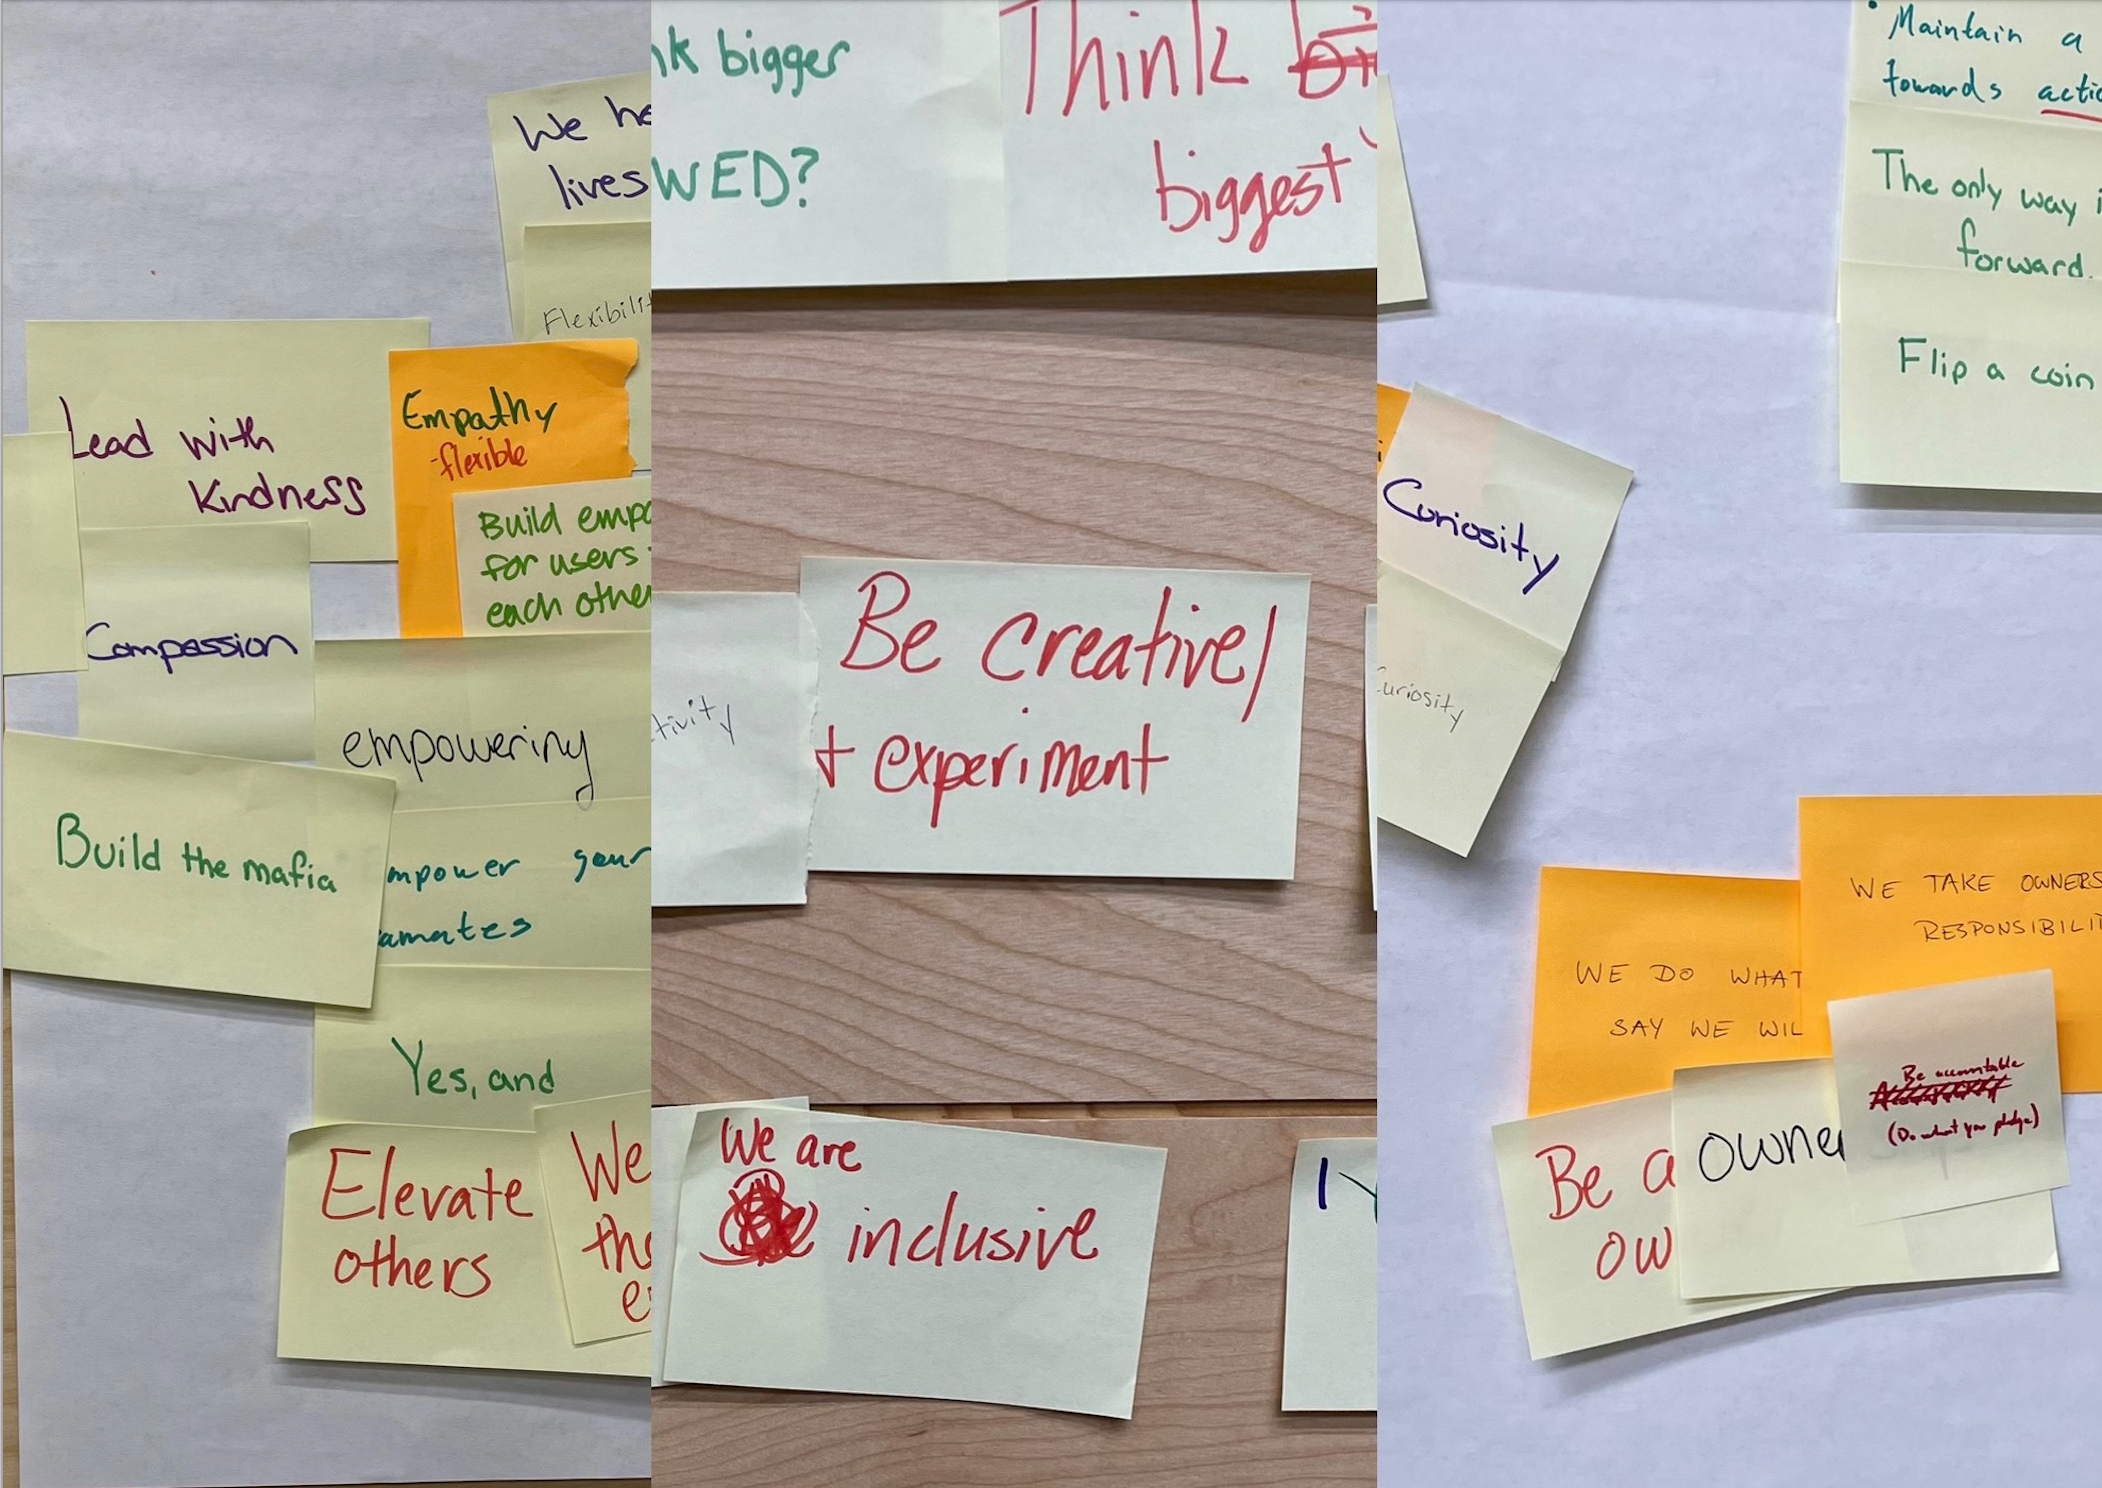 We he
lives
Flexibilit
Lead with
Kindness
Empathy
-flexible
Build empa
for users
each othe
Compassion
empowering
Build the mafia
mpower your
amates
Yes, and
Elevate
others
We
the
nk bigger
WED?
Think
biggest
tivity
Be creative/
+ experiment
We are
inclusive
I
Maintain a
towards actio
The only way i
forward.
Flip a coin
Curiosity
Curiosity
WE TAKE OWNERS
RESPONSIBILIT
WE DO WHAT
SAY WE WIL
Be accountable
(Do what you pledge)
Be a
ow
owner